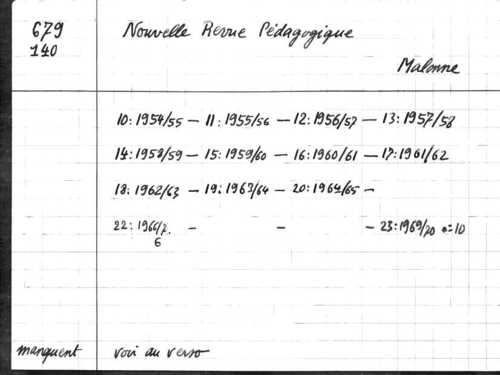 679 Nouvelle Revue Pédagogique
140
Malonne
10: 1954/55 — 11: 1955/56 — 12: 1956/57 — 13: 1957/58
14: 1958/59 — 15: 1959/60 — 16: 1960/61 — 17: 1961/62
18: 1962/63 — 19: 1963/64 — 20: 1964/65 —
22: 1966/7. — — — 23: 1969/70 n=10
6
manquent voir au verso